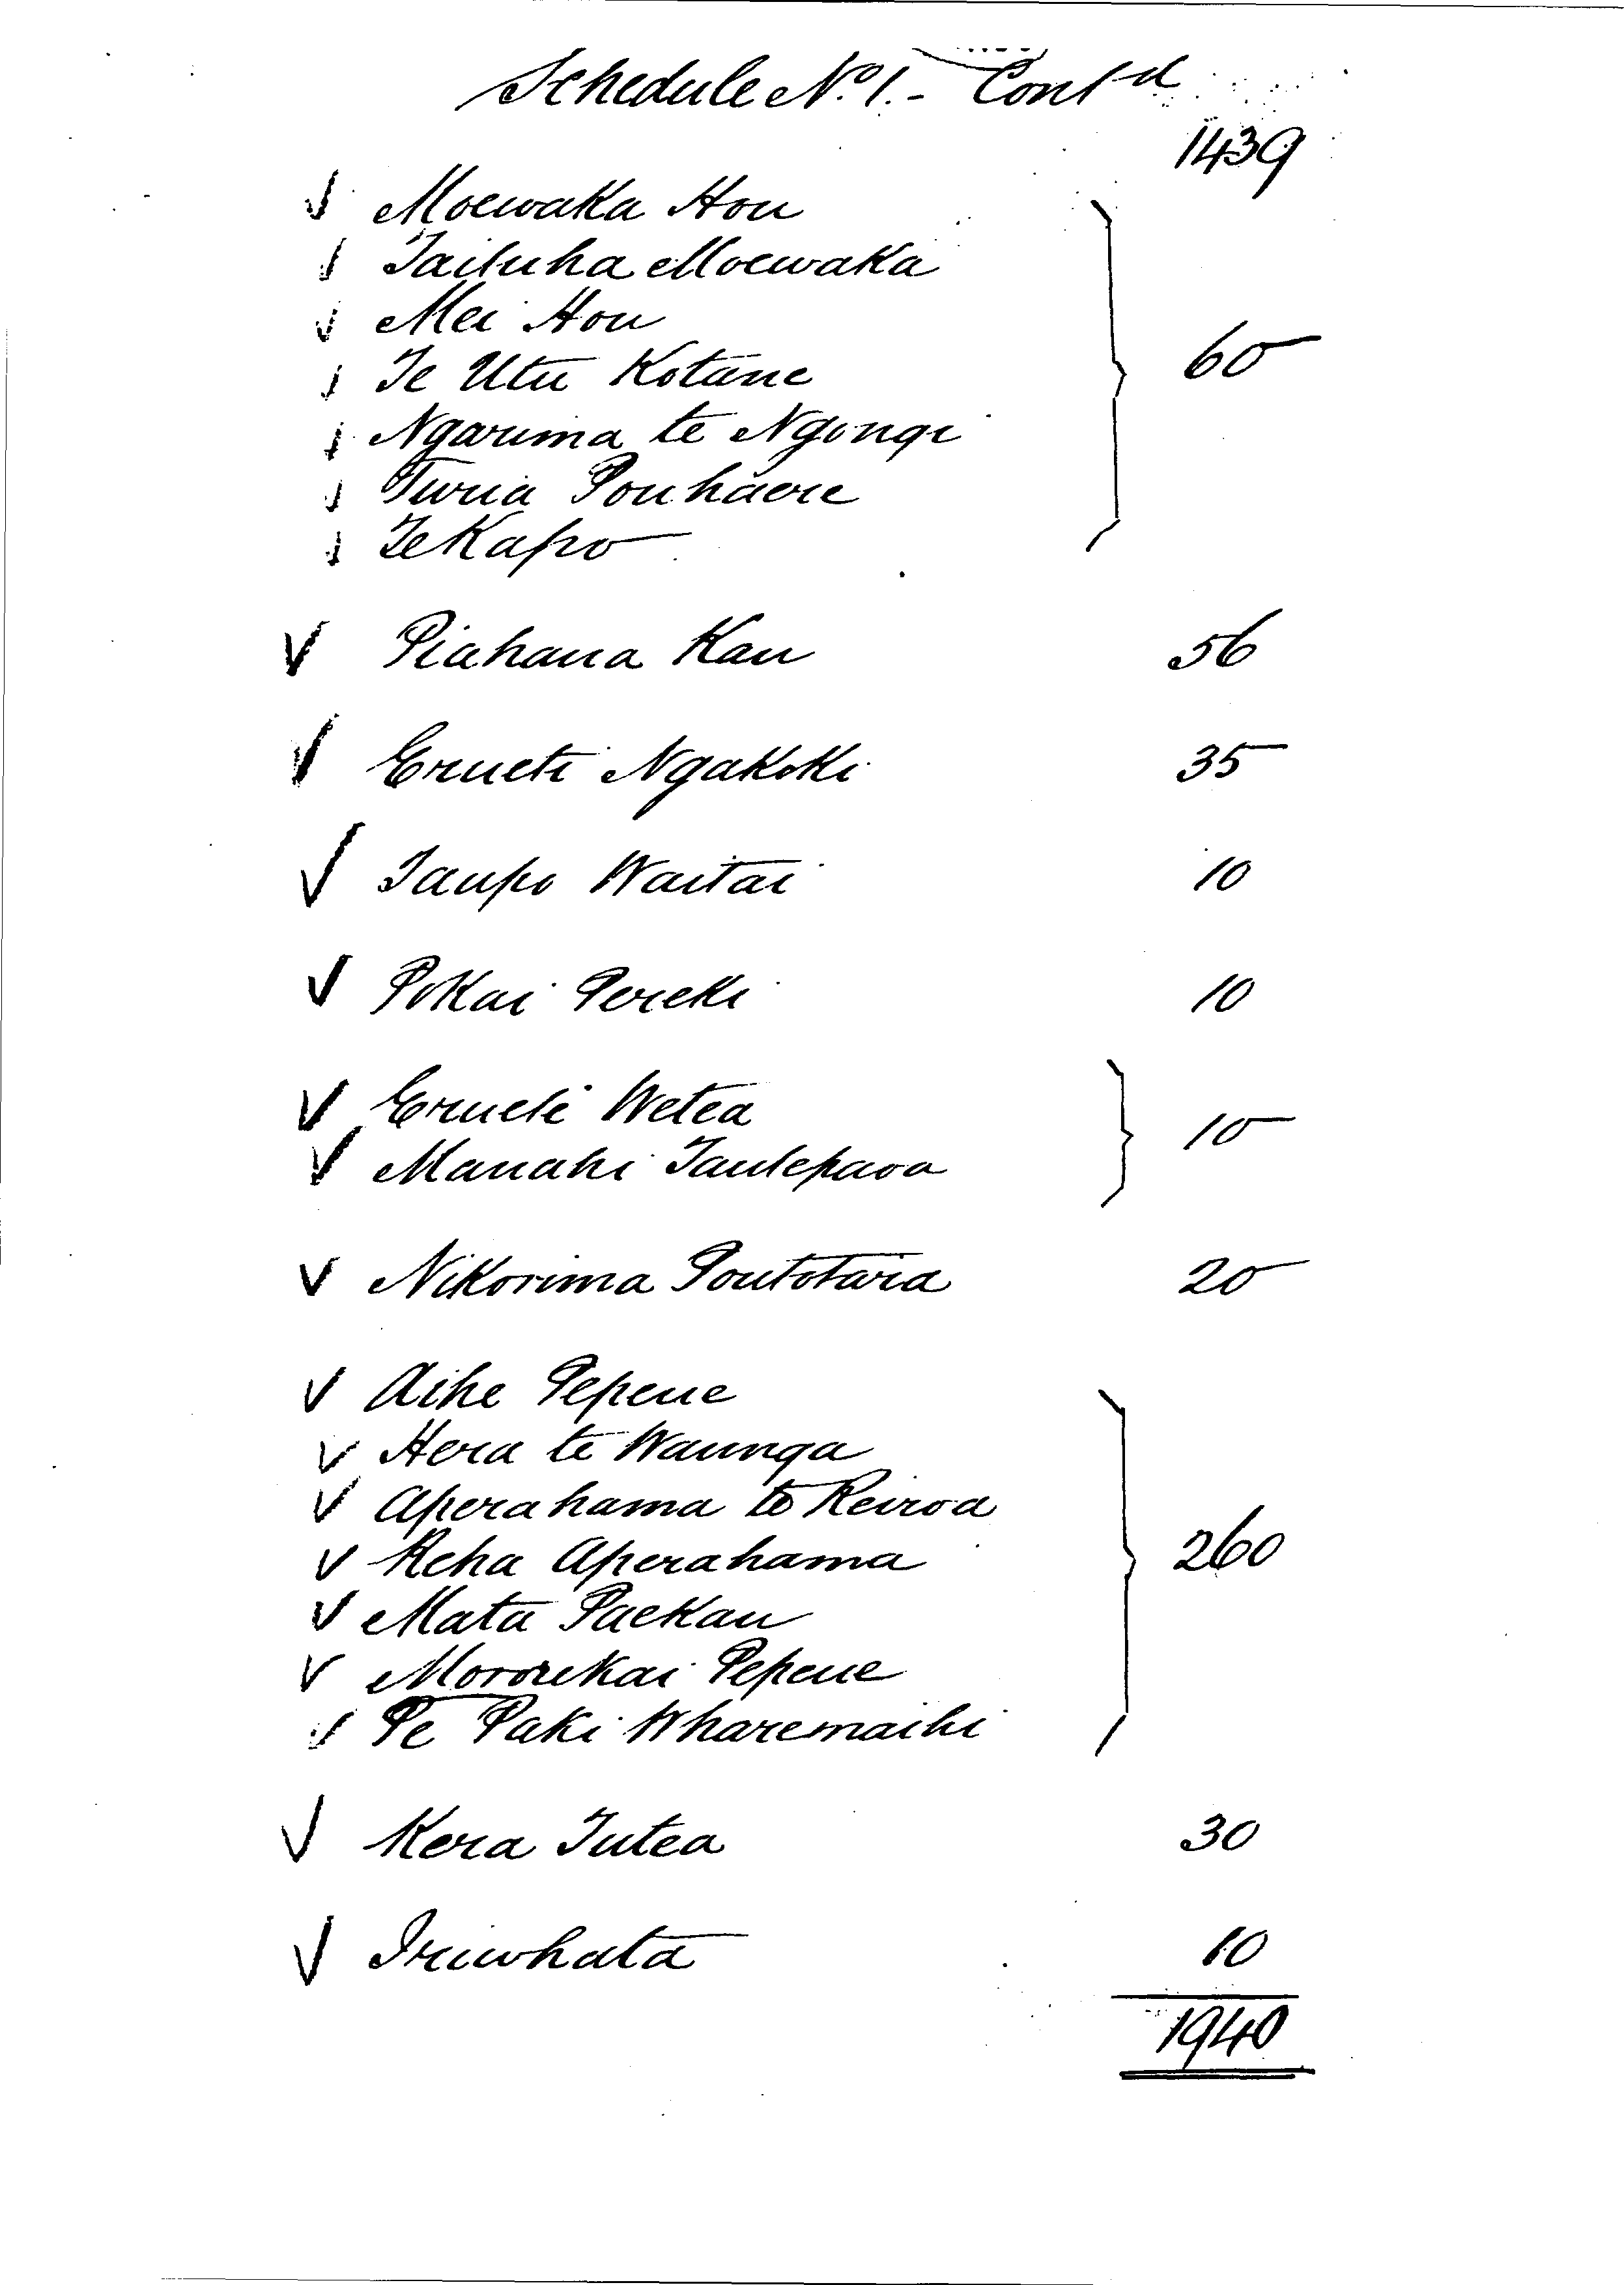 Schedule No. 1. - Contd
1439
✓ Moewaka Hou
✓ Taituha Moewaka
✓ Mei Hou
✓ Te Utu Kotane
60
✓ Ngarima te Ngongi
✓ Turia Pouhaere
✓ Te Kapo
✓ Piahana Kau 56
✓ Erueti Ngakoki 35
✓ Taupo Waitai 10
✓ Pokai Pereki 10
✓ Erueti Wetea
10
✓ Manahi Tautepaoa
✓ Nikorima Poutotara 20
✓ Aihe Pepene
✓ Hera te Waunga
✓ Aperahama te Reiroa
✓ Reha Aperahama 260
✓ Mata Paekau
✓ Pepene
✓ Te Paki Wharemaihi
✓ Kera Tutea 30
✓ Iriwhata 10
1940